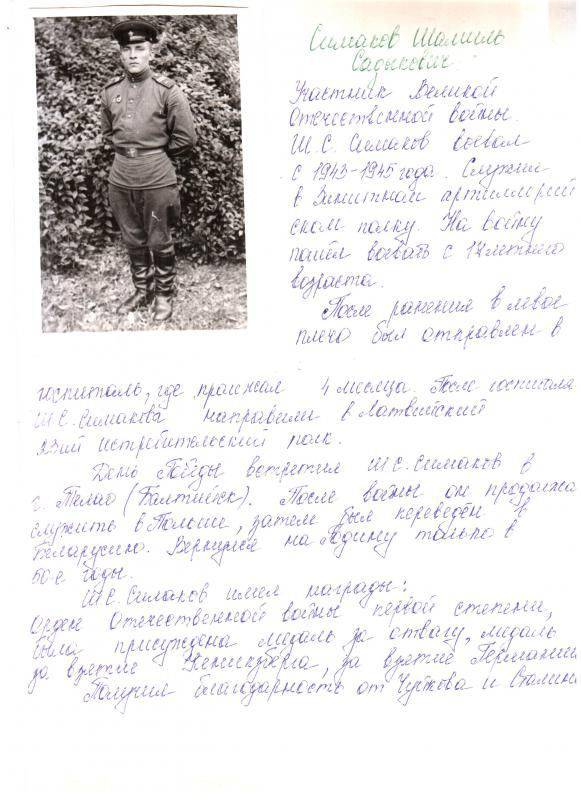 Симаков Шамиль
Садыкович
Участник Великой
Отечественной войны.
Ш. С. Симаков воевал
с 1943-1945 года. Служил
в Зенитном артиллерий
ском полку. На войну
пошёл воевать с 17 летнего
возраста.
После ранения в левое
плечо был отправлен в
госпиталь, где пролежал 4 месяца. После госпиталя
Ш.С. Симакова направили в Латвийский
23ий истребительский полк.
День Победы встретил Ш.С. Симаков в
г. (Балтийск). После войны он продолжа
служить в Польше, затем был переведён в
Беларусию. Вернулся на Родину только в
50-е годы.
Ш.С. Симаков имел награды:
Орден Отечественной войны первой степени,
была присуждена медаль за отвагу, медаль
за взятие Кенигсберга, за взятие Германии
Получил благодарность от и Сталин